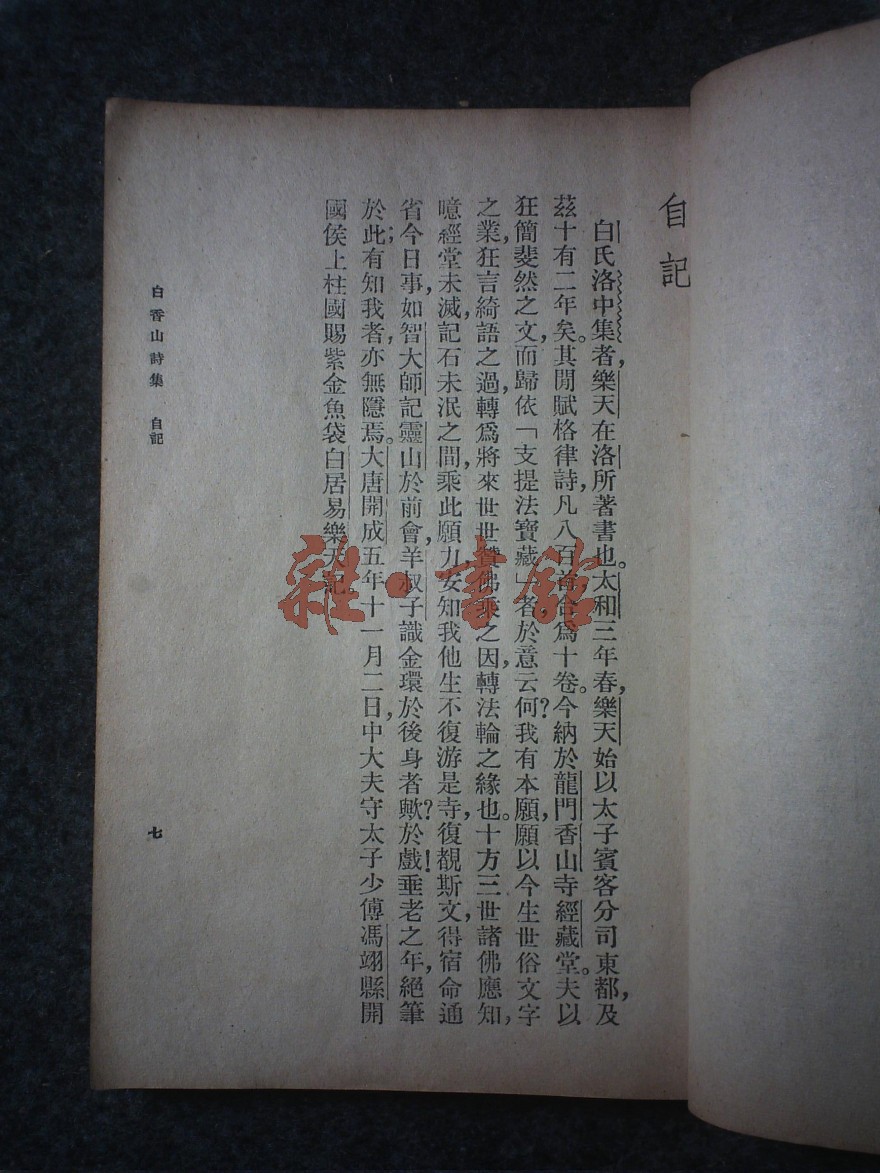 自記
白氏洛中集者，樂天在洛所著書也。太和三年春，樂天始以太子賓客分司東都，及
茲十有二年矣。其閒賦格律詩，凡八百首，合爲十卷。今納於龍門香山寺經藏堂。夫以
狂簡斐然之文，而歸依「支提法寶藏」者，於意云何？我有本願，願以今生世俗文字
之業，狂言綺語之過，轉爲將來世世贊佛乘之因，轉法輪之緣也。十方三世諸佛應知，
噫！經堂未滅，記石未泯之間，乘此願力，安知我他生不復游是寺，復覩斯文，得宿命通，
省今日事，如智大師記靈山於前會，羊叔子識金環於後身者歟？於戲！垂老之年，絕筆
於此；有知我者，亦無隱焉。大唐開成五年十一月二日，中大夫守太子少傅馮翊縣開
國侯上柱國賜紫金魚袋白居易樂天記。
白香山詩集　自記
七
雜·書館